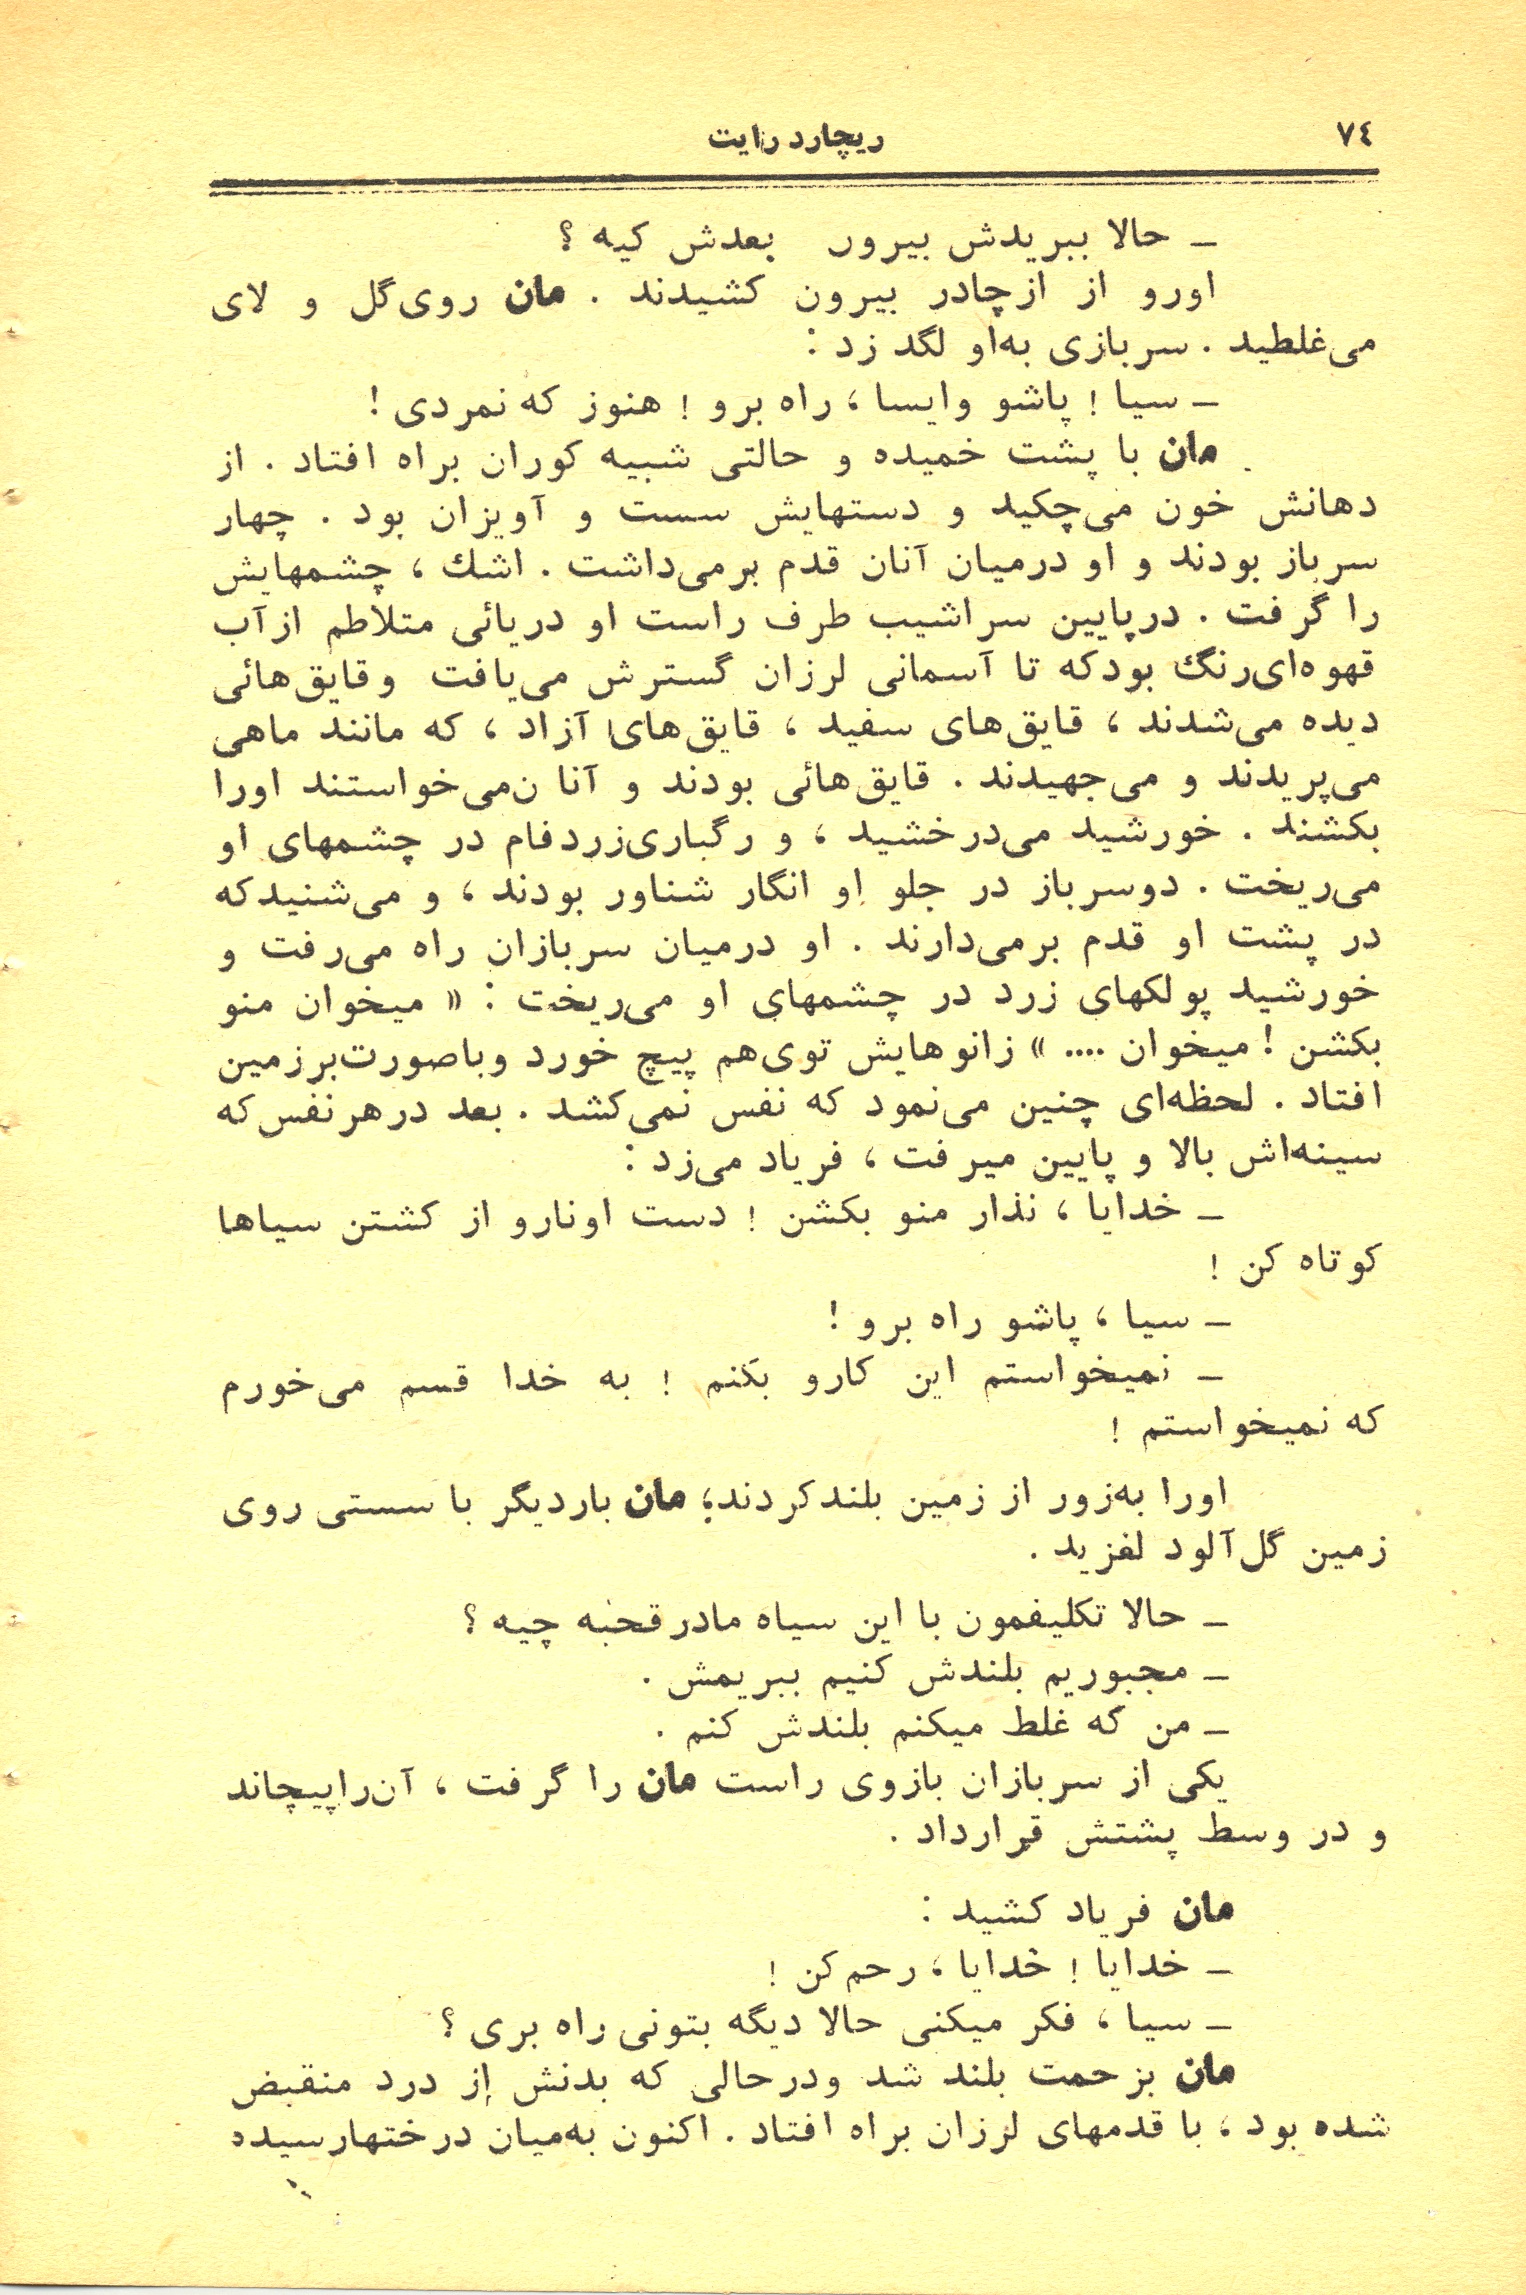 ٧٤
ریچارد رایت
ـ حالا ببریدش بیرون   بعدش کیه ؟
اورو از ازچادر بیرون کشیدند . مان روی‌گل و لای
می‌غلطید . سربازی به‌او لگد زد :
ـ سیا ! پاشو وایسا ، راه برو ! هنوز که نمردی !
مان با پشت خمیده و حالتی شبیه کوران براه افتاد . از
دهانش خون می‌چکید و دستهایش سست و آویزان بود . چهار
سرباز بودند و او درمیان آنان قدم برمی‌داشت . اشك ، چشمهایش
را گرفت . درپایین سراشیب طرف راست او دریائی متلاطم ازآب
قهوه‌ای‌رنگ بودکه تا آسمانی لرزان گسترش می‌یافت وقایق‌هائی
دیده می‌شدند ، قایق‌های سفید ، قایق‌های آزاد ، که مانند ماهی
می‌پریدند و می‌جهیدند . قایق‌هائی بودند و آنا ن‌می‌خواستند اورا
بکشند . خورشید می‌درخشید ، و رگباری‌زردفام در چشمهای او
می‌ریخت . دوسرباز در جلو او انگار شناور بودند ، و می‌شنیدکه
در پشت او قدم برمی‌دارند . او درمیان سربازان راه می‌رفت و
خورشید پولکهای زرد در چشمهای او می‌ریخت : « میخوان منو
بکشن ! میخوان .... » زانوهایش توی‌هم پیچ خورد وباصورت‌برزمین
افتاد . لحظه‌ای چنین می‌نمود که نفس نمی‌کشد . بعد درهرنفس‌که
سینه‌اش بالا و پایین میرفت ، فریاد می‌زد :
ـ خدایا ، نذار منو بکشن ! دست اونارو از کشتن سیاها
کوتاه کن !
ـ سیا ، پاشو راه برو !
ـ نمیخواستم این کارو بکنم ! به خدا قسم می‌خورم
که نمیخواستم !
اورا به‌زور از زمین بلندکردند؛ مان باردیگر با سستی روی
زمین گل‌آلود لغزید .
ـ حالا تکلیفمون با این سیاه مادرقحبه چیه ؟
ـ مجبوریم بلندش کنیم ببریمش .
ـ من که غلط میکنم بلندش کنم .
یکی از سربازان بازوی راست مان را گرفت ، آن‌راپیچاند
و در وسط پشتش قرارداد .
مان فریاد کشید :
ـ خدایا ! خدایا ، رحم‌کن !
ـ سیا ، فکر میکنی حالا دیگه بتونی راه بری ؟
مان بزحمت بلند شد ودرحالی که بدنش از درد منقبض
شده بود ، با قدمهای لرزان براه افتاد . اکنون به‌میان درختهارسیده